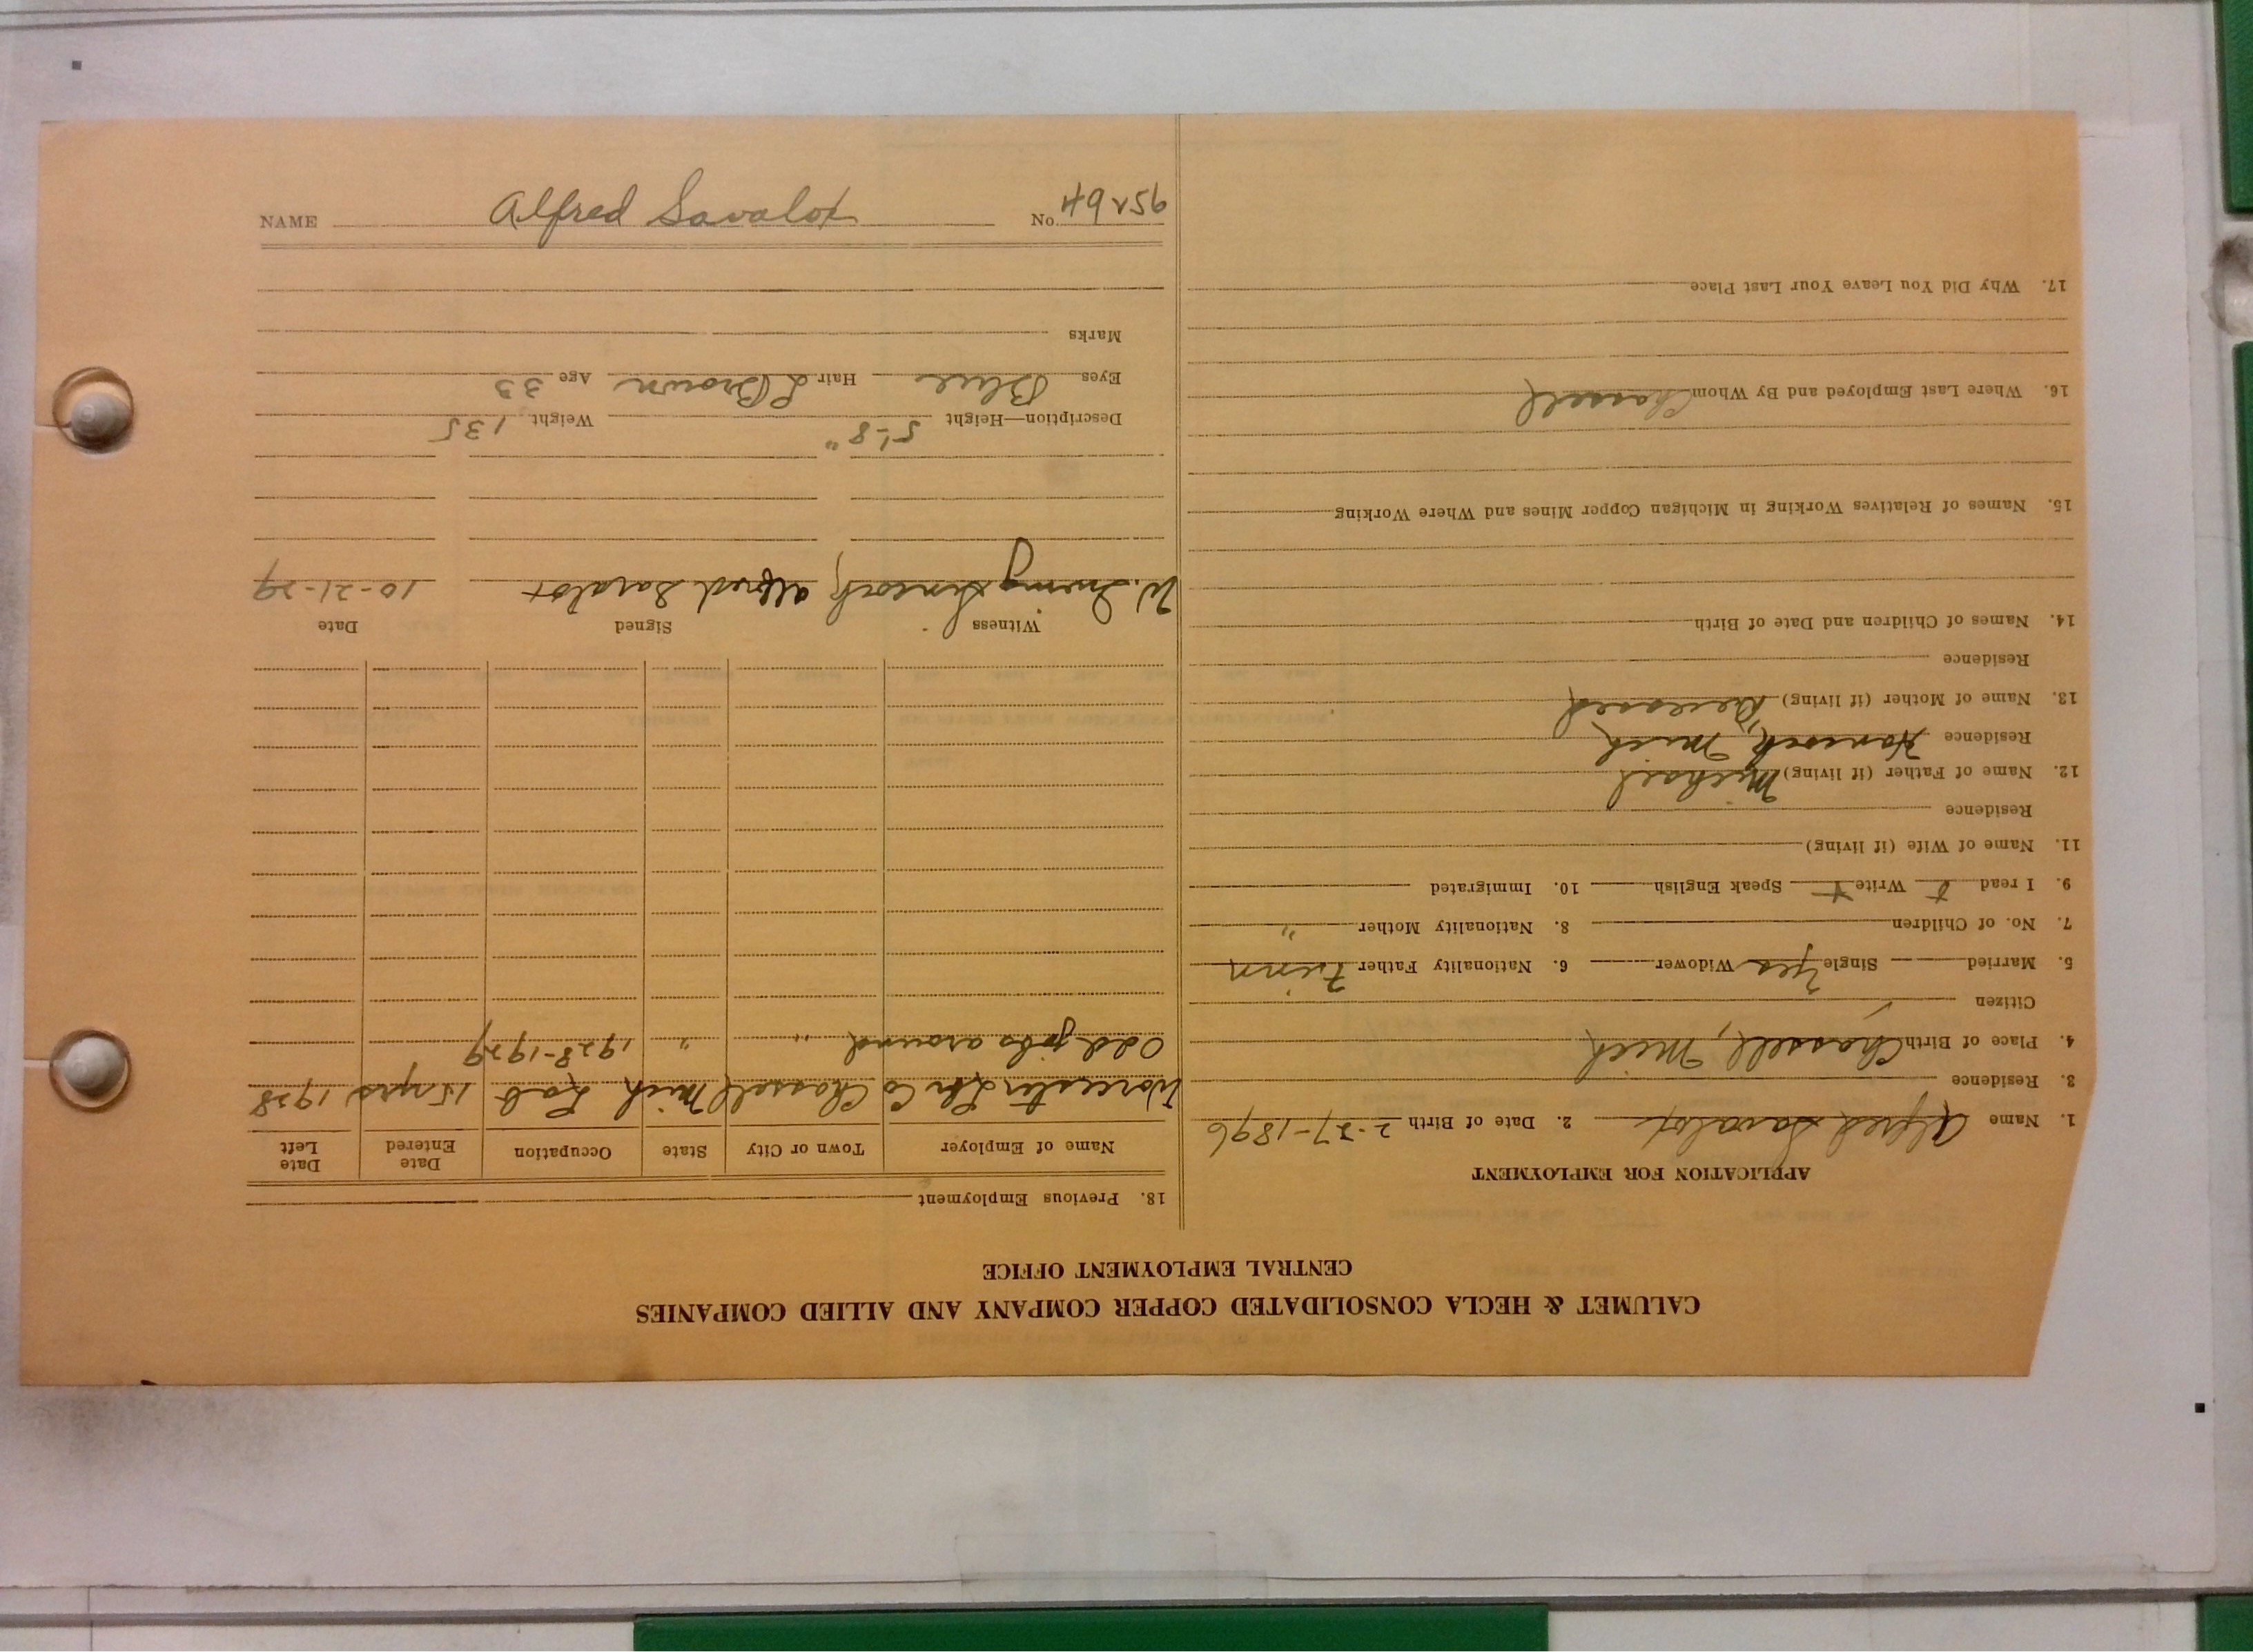 CALUMET & HECLA CONSOLIDATED COPPER COMPANY AND ALLIED COMPANIES
CENTRAL EMPLOYMENT OFFICE
APPLICATION FOR EMPLOYMENT
1. Name Alfred Savalox 2. Date of Birth 2-27-1896
3. Residence
4. Place of Birth Chassell, Mich
Citizen
5. Married Single Yes Widower 6. Nationality Father Finn
7. No. of Children 8. Nationality Mother "
9. I read Write Speak English 10. Immigrated
11. Name of Wife (if living)
Residence
12. Name of Father (if living) Michael
Residence Hancock, Mich
13. Name of Mother (if living) Deceased
Residence
14. Names of Children and Date of Birth
15. Names of Relatives Working in Michigan Copper Mines and Where Working
16. Where Last Employed and By Whom Chassell
17. Why Did You Leave Your Last Place
18. Previous Employment
Name of Employer Town or City State Occupation Date Entered Date Left
Worcester Lbr Co Chassell Mich Lab 15 yrs 1928
Odd jobs around " " 1928-1929
Witness Signed Date
W. Alfred Savalox 10-21-29
Description—Height 5'-8" Weight 135
Eyes Blue Hair L Brown Age 33
Marks
NAME Alfred Savalox No.